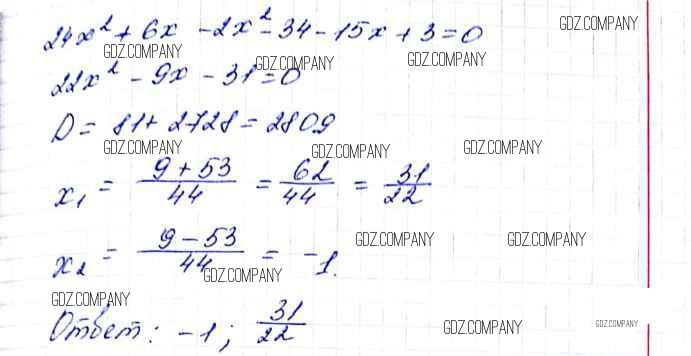 24x² + 6x - 2x² - 34 - 15x + 3 = 0
GDZ.COMPANY GDZ.COMPANY GDZ.COMPANY GDZ.COMPANY
22x² - 9x - 31 = 0
D = 81 + 2728 = 2809
GDZ.COMPANY GDZ.COMPANY GDZ.COMPANY
x₁ = (9 + 53)/44 = 62/44 = 31/22
x₂ = (9 - 53)/44 = -1.
GDZ.COMPANY GDZ.COMPANY GDZ.COMPANY
GDZ.COMPANY
Ответ: -1; 31/22
GDZ.COMPANY GDZ.COMPANY